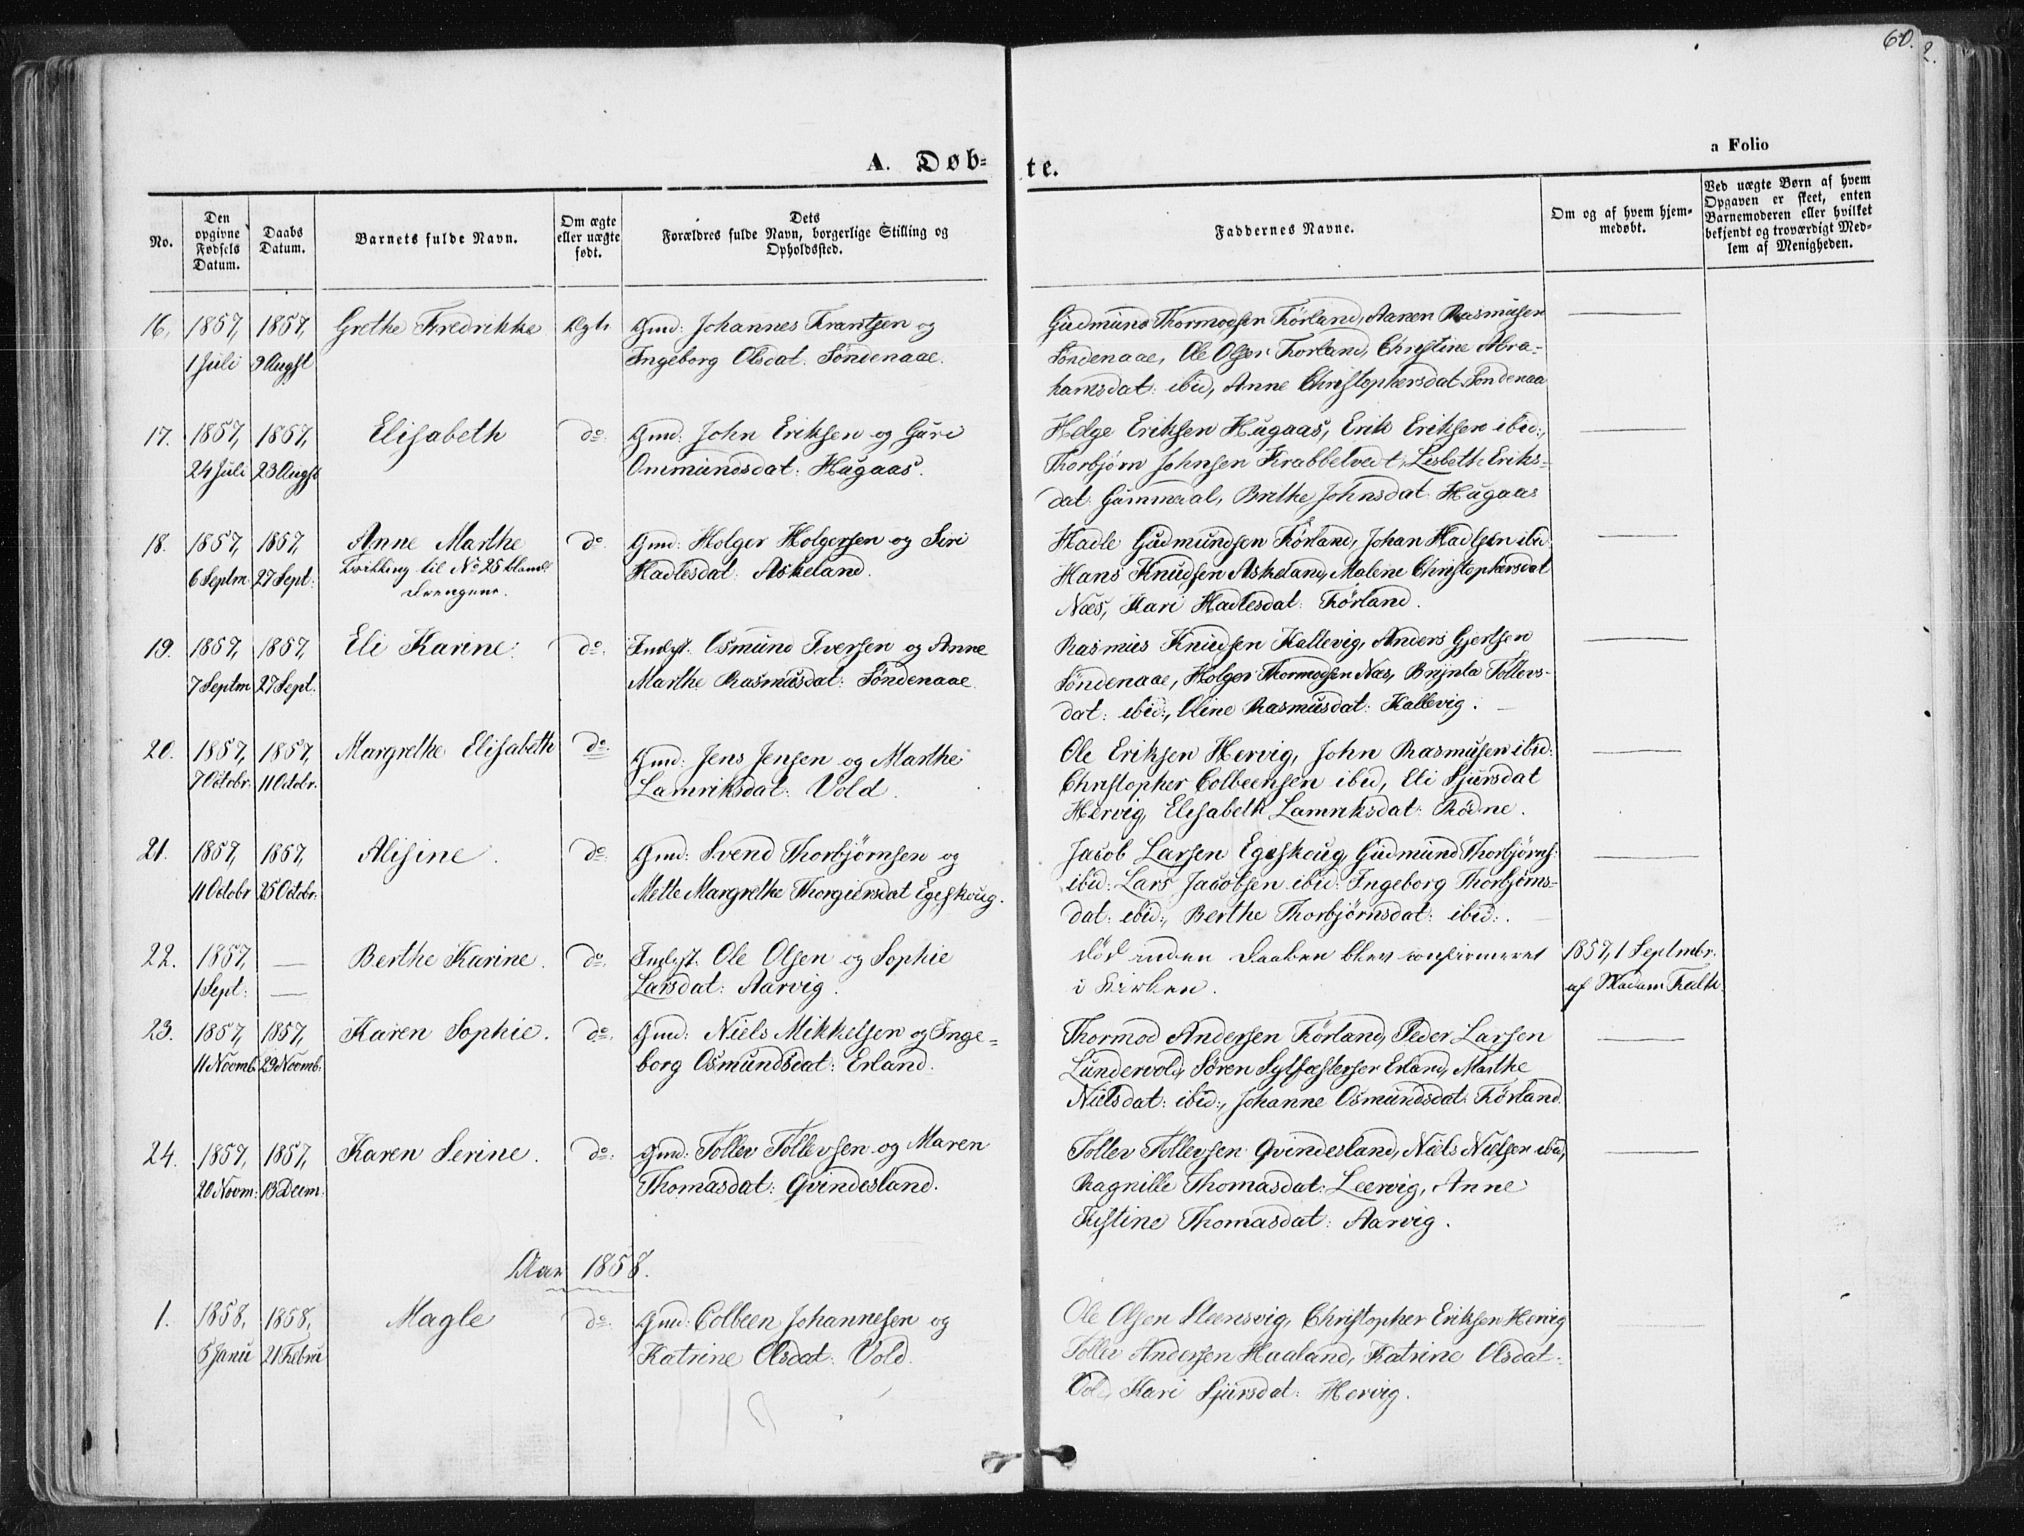 60.
2.
a Folio
A. Døb-
te.
No.
Den opgivne Fødsels Datum.
Daabs Datum.
Barnets fulde Navn.
Om ægte eller uægte født.
Dets Forældres fulde Navn, borgerlige Stilling og Opholdssted.
Faddernes Navne.
Om og af hvem hjem-medøbt.
Ved uægte Børn af hvem Opgaven er skeet, enten Barnemoderen eller hvilket bekjendt og troværdigt Med-lem af Menigheden.
16. 1857, 1857, Grethe Fredrikke Ægte Gmd: Johannes Frantzen og
1 Juli 9 Augst Ingeborg Olsdat. Søndenaae.
Gudmund Thormodsen Førland, Aanen Rasmusen
Søndenaae, Ole Olsen Førland, Christine Abra-
hamsdat: ibid, Anne Christophersdat Søndenaa
17. 1857, 1857, Elisabeth do: Gmd: John Eriksen og Guri
24 Juli 23 Augst Ommundsdat: Hugaas.
Helge Eriksen Hugaas, Erik Eriksen ibid:,
Thorbjørn Johnsen Krabbetvedt, Lisbeth Eriks-
dat Gammedal, Brithe Johnsdat: Hugaas
18. 1857, 1857, Anne Marthe do Gmd: Holger Holgersen og Siri
6 Septm 27 Sept: Tvilling til No 25 blandt Hadlesdat: Askeland.
Drengene.
Hadle Gudmundsen Førland, Johan Hadlsen ibid
Hans Knudsen Askeland, Malene Christophersdat
Næs, Kari Hadlesdat: Førland.
19. 1857, 1857, Eli Karine. do: Indst. Osmund Iversen og Anne
7 Septm 27 Sept. Marthe Rasmusdat: Søndenaae
Rasmus Knudsen Kallevig, Anders Gjertsen
Søndenaae, Holger Thormodsen Næs, Brynla Tollevs-
dat: ibid:, Oline Rasmusdat: Kallevig.
20. 1857, 1857, Margrethe Elisabeth do: Gmd: Jens Jensen og Marthe
7 Octobr. 11 Octobr. Lamriksdat: Vold.
Ole Eriksen Hervig, John Rasmusen ibid:
Christopher Colbeensen ibid, Eli Sjursdat
Hervig, Elisabeth Lamriksdat: Rødne.
21. 1857, 1857, Alisine. do: Gmd: Svend Thorbjørnsen og
11 Octobr 25 Octobr: Mette Margrethe Thorgiersdat Egeskoug.
Jacob Larsen Egeskoug, Gudmund Thorbjørns:
ibid: Lars Jacobsen ibid: Ingeborg Thorbjørns-
dat: ibid:, Berthe Thorbjørnsdat: ibid:.
22. 1857, — Berthe Karine. do: Indst. Ole Olsen og Sophie
1 Sept: — Larsdat: Aarvig.
død inden Daaben blev confirmeret
i Kirken.
1857, 1 Septmbr.
af Madam Falk.
23. 1857, 1857, Karen Sophie. do: Gmd: Niels Mikkelsen og Inge-
11 Novmb. 29 Novmb: borg Osmundsdat: Erland.
Thormod Andersen Førland, Peder Larsen
Lundevold, Søren Sylfæstersen Erland, Marthe
Nielsdat: ibid:, Johanne Osmundsdat: Førland.
24. 1857, 1857, Karen Serine. do: Gmd: Tollev Tollevsen og Maren
20 Novm: 13 Decm: Thomasdat: Qvindesland.
Tollev Tollevsen Qvindesland, Niels Nielsen ibid,
Ragnille Thomasdat: Leervig, Anne
Kistine Thomasdat: Aarvig.
Aar 1858.
1. 1858, 1858, Magle do: Gmd: Colbeen Johannesen og
5 Janu 21 Febru Katrine Olsdat: Vold.
Ole Olsen Steensvig, Christopher Eriksen Hervig
Tollev Andersen Haaland, Katrine Olsdat:
Vold, Kari Sjursdat: Hervig.